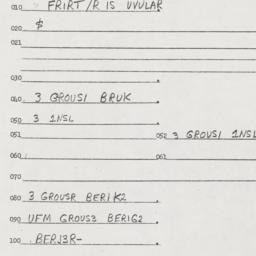 010 FRIRT/R IS UVULAR
020 $
021
030
040 3 GROUS1 BRUK
050 3 1NSL
051 052 3 GROUS1 1NSL
060 061
070
080 3 GROUSR BER1K2
090 UFM GROUS3 BERIG2
100 BERJ3R-